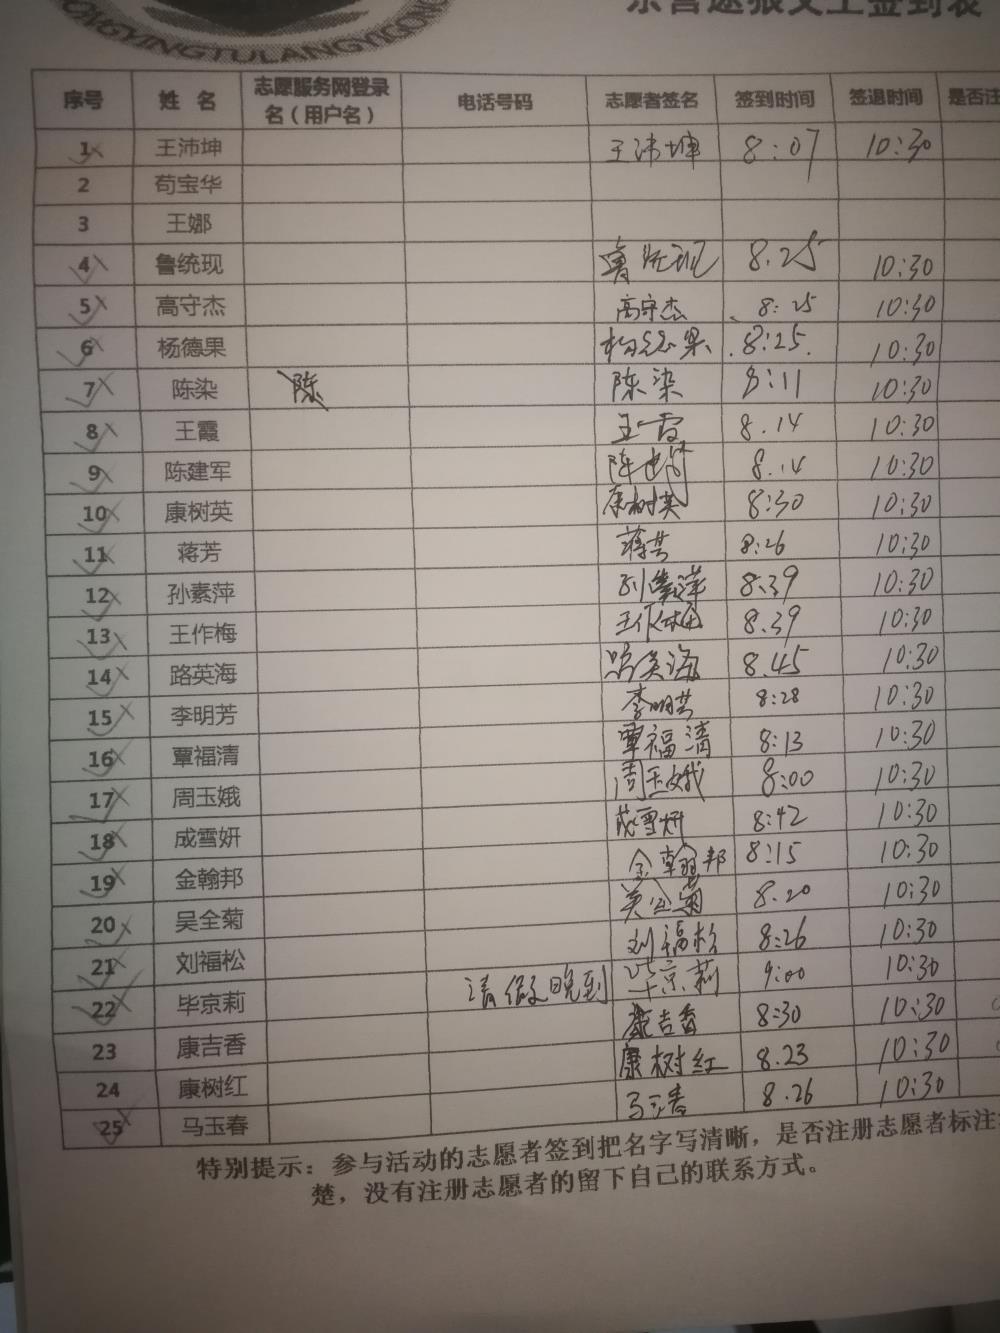 东营途狼义工签到表
ONGYINGTULANGYIGONG
序号 姓 名 志愿服务网登录名（用户名） 电话号码 志愿者签名 签到时间 签退时间 是否注
1 王沛坤 王沛坤 8:07 10:30
2 苟宝华
3 王娜
4 鲁统现 鲁统现 8.25 10:30
5 高守杰 高守杰 8:25 10:30
6 杨德果 杨德果 8:25 10:30
7 陈染 陈 陈染 8:11 10:30
8 王霞 王霞 8.14 10:30
9 陈建军 陈建军 8.14 10:30
10 康树英 康树英 8:30 10:30
11 蒋芳 蒋芳 8:26 10:30
12 孙素萍 孙素萍 8:39 10:30
13 王作梅 王作梅 8.39 10:30
14 路英海 路英海 8.45 10:30
15 李明芳 李明芳 8:28 10:30
16 覃福清 覃福清 8:13 10:30
17 周玉娥 周玉娥 8:00 10:30
18 成雪妍 成雪妍 8:42 10:30
19 金翰邦 金翰邦 8:15 10:30
20 吴全菊 吴全菊 8.20 10:30
21 刘福松 刘福松 8:26 10:30
22 毕京莉 请假晚到 毕京莉 9:00 10:30
23 康吉香 康吉香 8:30 10:30
24 康树红 康树红 8.23 10:30
25 马玉春 马玉春 8.26 10:30
特别提示：参与活动的志愿者签到把名字写清晰，是否注册志愿者标注
楚，没有注册志愿者的留下自己的联系方式。